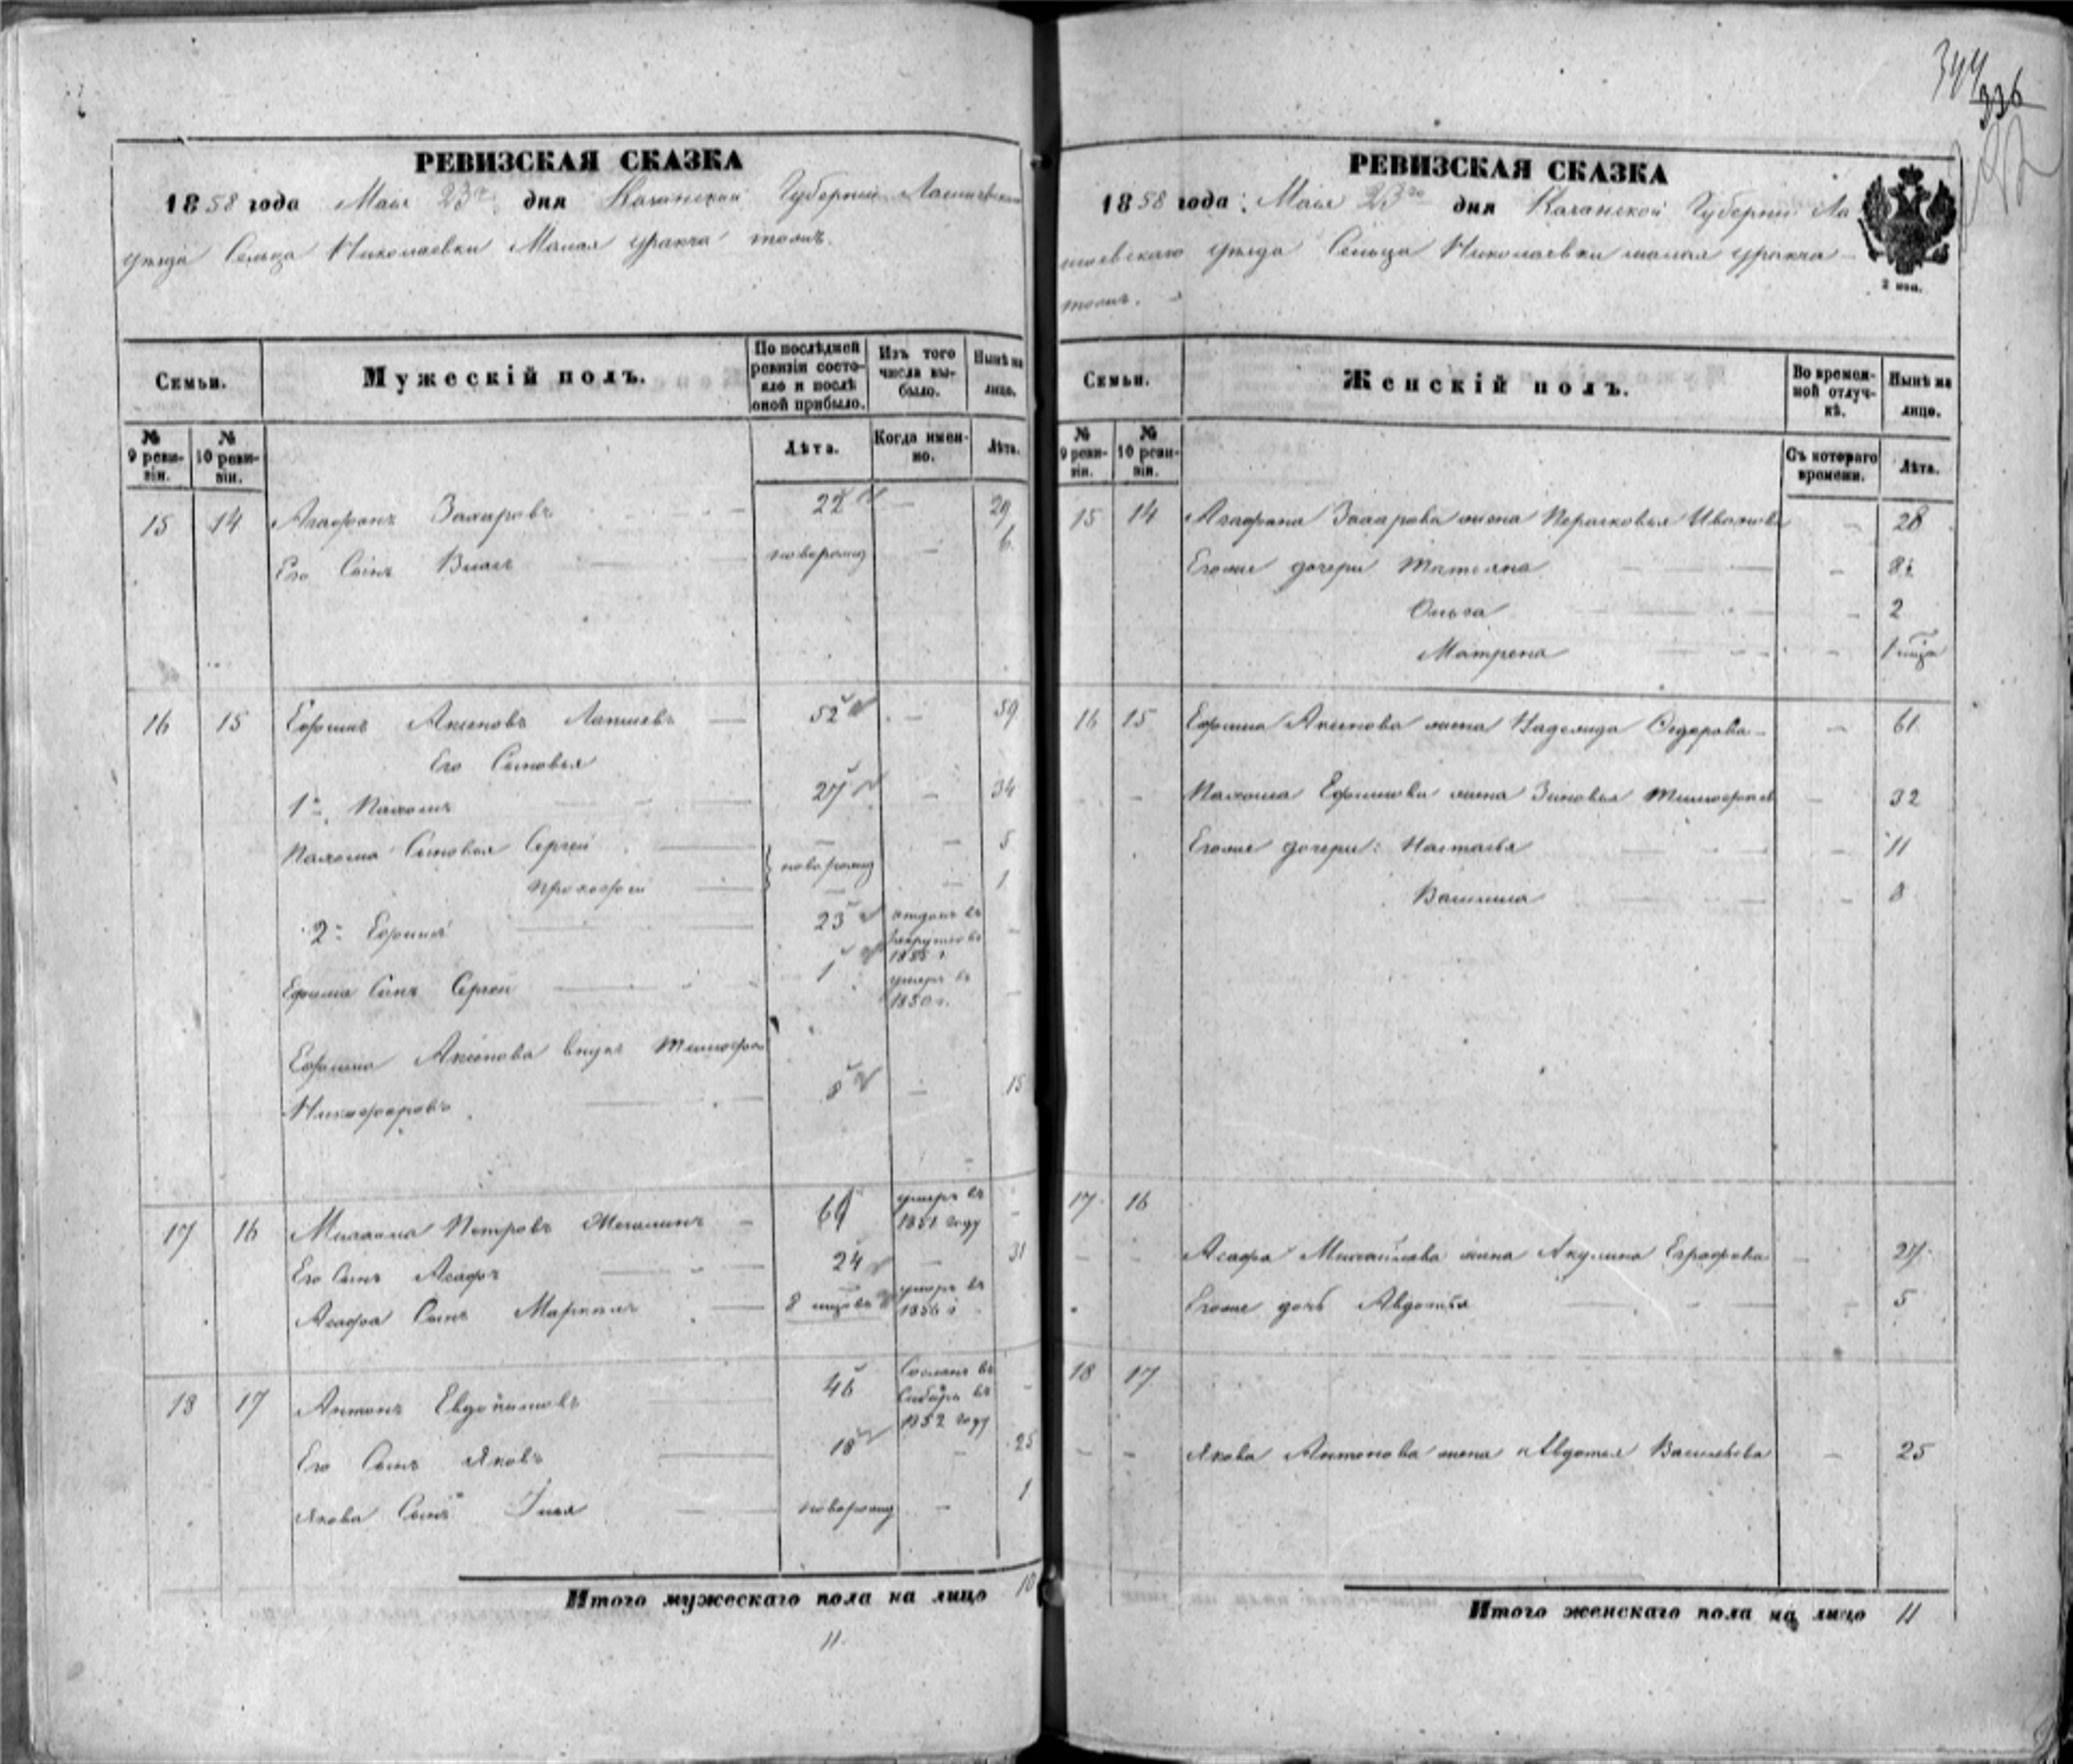 344
336
РЕВИЗСКАЯ СКАЗКА
1858 года Мая 23го дня Казанской Губернии Лаишевскаго
уезда Сельца Николаевки Малая уракча тожъ.
Семьи.
Мужескій полъ.
По послѣдней ревизіи состояло и послѣ оной прибыло.
Изъ того числа выбыло.
Нынѣ на лицо.
№ 9 ревизіи.
№ 10 ревизіи.
Лѣта.
Когда именно.
Лѣта.
15 14 Агафонъ Захаровъ 22 — 29
Его Сынъ Власъ новорожд — 6
16 15 Ефимъ Аксеновъ Лапшевъ — 52 — 59
Его Сыновья
1й Пахомъ 27 — 34
Пахома Сыновья Сергей — 5
новорожд
Прокофей — 1
2й Ефимъ 23 отданъ въ рекруты въ 1855 г. —
Ефима Сынъ Сергей 1 умеръ въ 1850 г. —
Ефима Аксенова внукъ Тимофей
Никифоровъ 8 — 15
17 16 Михайла Петровъ — 61 умеръ въ 1851 году —
Его Сынъ Асафъ 24 — 31
Асафа Сынъ 8 умеръ въ 1856 г.
18 17 Антонъ Евдокимовъ 46 Сосланъ въ Сибирь въ 1852 году —
Его Сынъ Яковъ 18 — 25
Якова Сынъ Илья новорожд — 1
Итого мужескаго пола на лицо 10
11
РЕВИЗСКАЯ СКАЗКА
1858 года Мая 23го дня Казанской Губернии Ла
ишевскаго уезда Сельца Николаевки малая уракча
тожъ.
2 коп.
Семьи.
Женскій полъ.
Во временной отлучкѣ.
Нынѣ на лицо.
№ 9 ревизіи.
№ 10 ревизіи.
Съ котораго времени.
Лѣта.
15 14 Агафона Захарова жена Парасковья Иванова — 28
Егоже дочери Татьяна — 8½
Ольга — 2
Матрена — 1
16 15 Ефима Аксенова жена Надежда Сидорова — 61
— Пахома Ефимова жена Зиновья Тимофеев — 32
Егоже дочери: Настасья — 11
Василиса — 8
17 16
— — Асафа Михайлова жена Акулина Евграфова — 27
Егоже дочь Авдотья — 5
18 17
— — Якова Антонова жена Авдотья Васильева — 25
Итого женскаго пола на лицо 11